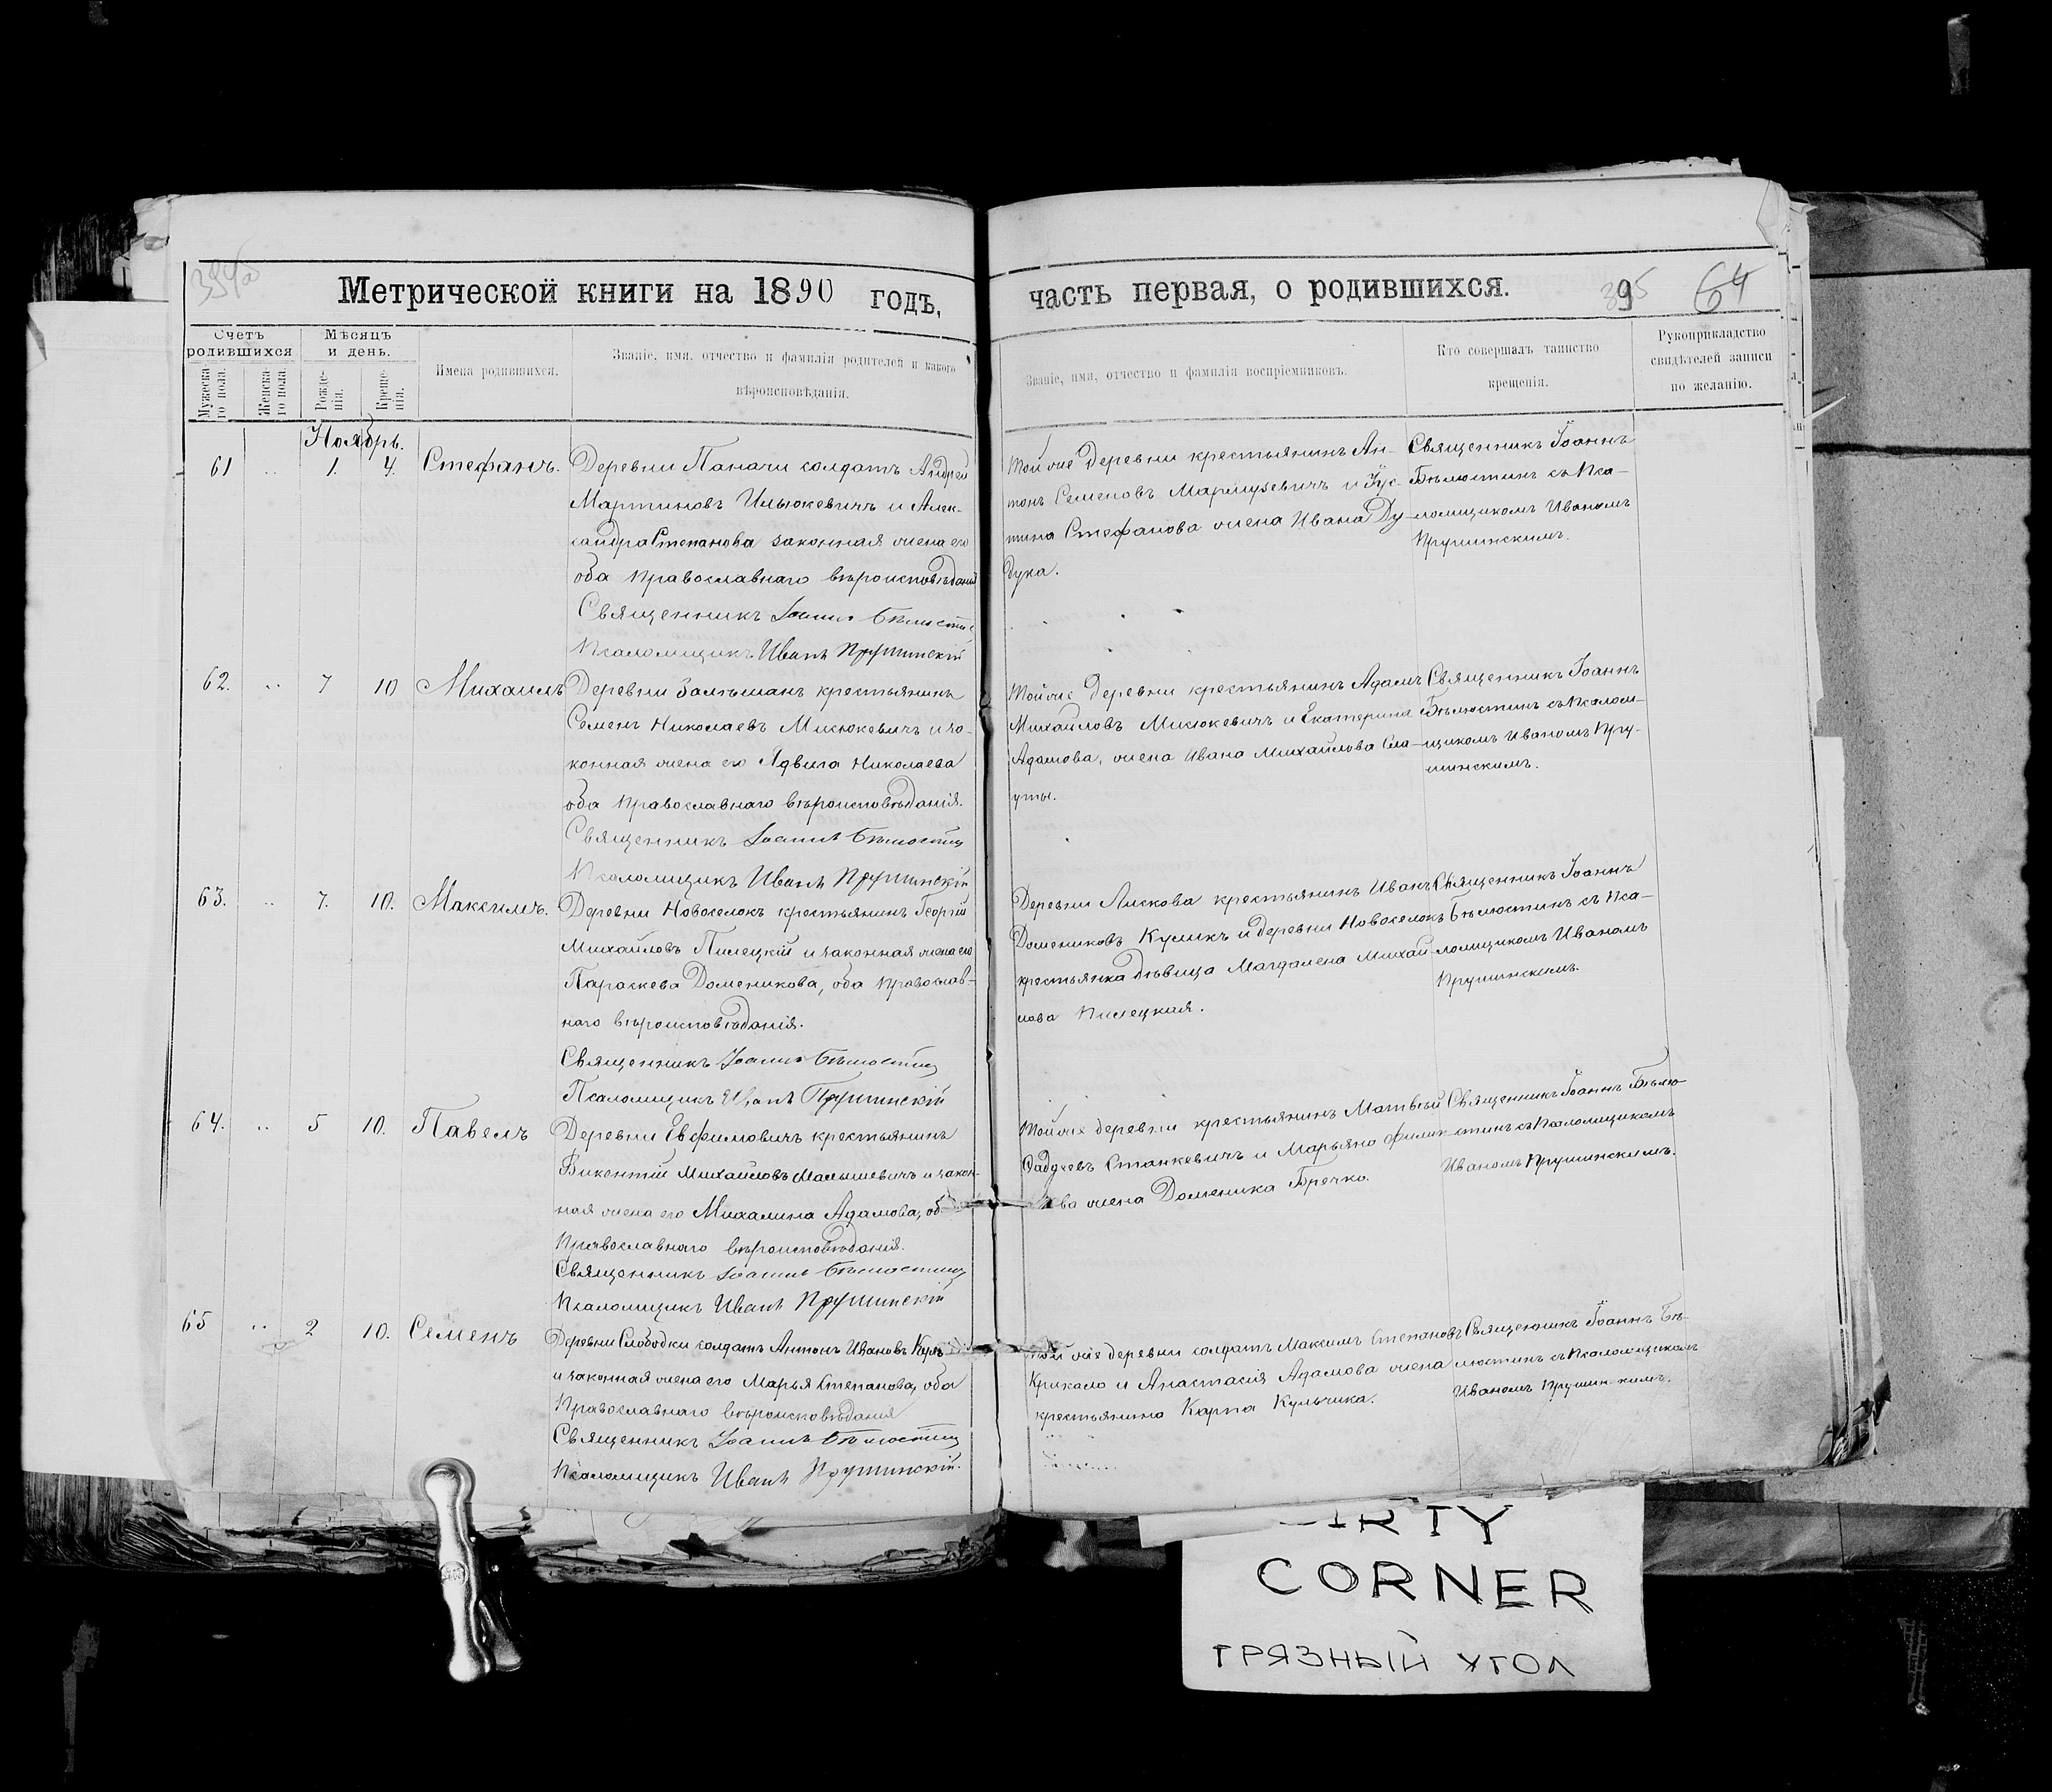 Метрической книги на 1890 годъ,
часть первая, о родившихся.
395 64
Счетъ родившихся
Мужеска-го пола.
Женска-го пола.
Мѣсяцъ и день.
Рожде-нія.
Креще-нія.
Имена родившихся.
Званіе, имя, отчество и фамилія родителей и какого
вѣроисповѣданія.
Званіе, имя, отчество и фамилія воспріемниковъ.
Кто совершалъ таинство
крещенія.
Рукоприкладство
свидѣтелей записи
по желанію.
Ноябрь.
61 .. 1. 4. Стефанъ.
Деревни Паначи солдатъ Андрей
Мартиновъ Ильюкевичъ и Алек-
сандра Степанова законная жена его
оба православнаго вѣроисповѣданія
Священникъ Іоаннъ Бѣлюстин
Псаломщикъ Иванъ Прушинскій
Той же деревни крестьянинъ Ан-
тонъ Семеновъ и Іус-
тина Стефанова жена Ивана Ду-
дука.
Священникъ Іоаннъ
Бѣлюстинъ съ Пса-
ломщикомъ Иваномъ
Прушинскимъ.
62. .. 7 10 Михаилъ
Деревни крестьянинъ
Семенъ Николаевъ Мисюкевичъ и за-
конная жена его Ядвига Николаева
оба православнаго вѣроисповѣданія.
Священникъ Іоаннъ Бѣлюстин
Псаломщикъ Иванъ Прушинскій
Той же деревни крестьянинъ Адамъ
Михайловъ Мисюкевичъ и Екатерина
Адамова, жена Ивана Михайлова Сла-
уты.
Священникъ Іоаннъ
Бѣлюстинъ съ Псалом-
щикомъ Иваномъ Пру-
шинскимъ.
63. .. 7. 10. Максимъ.
Деревни Новоселокъ крестьянинъ Георгій
Михайловъ Пилецкій и законная жена его
Параскева Доменикова, оба православ-
наго вѣроисповѣданія.
Священникъ Іоаннъ Бѣлюстин
Псаломщикъ Иванъ Прушинскій
Деревни Лискова крестьянинъ Иванъ
Домениковъ Куликъ и деревни Новоселокъ
крестьянка дѣвица Магдалена Михай-
лова Пилецкая.
Священникъ Іоаннъ
Бѣлюстинъ съ Пса-
ломщикомъ Иваномъ
Прушинскимъ.
64. .. 5 10. Павелъ
Деревни Евфимовичъ крестьянинъ
Викентій Михайловъ Малышевичъ и закон-
ная жена его Михалина Адамова, об
православнаго вѣроисповѣданія.
Священникъ Іоаннъ Бѣлюстин
Псаломщикъ Иванъ Прушинскій
Той же деревни крестьянинъ Матвѣй
Фадеевъ Станкевичъ и Марьяна Филип-
ва жена Доменика Бречко.
Священникъ Іоаннъ Бѣлю-
стинъ съ Псаломщикомъ
Иваномъ Прушинскимъ.
65 .. 2 10. Семенъ
Деревни Слободки солдатъ Антонъ Ивановъ
и законная жена его Марья Степанова, оба
Православнаго вѣроисповѣданія
Священникъ Іоаннъ Бѣлюстин
Псаломщикъ Иванъ Прушинскій.
той же деревни солдатъ Максимъ Степановъ
Крикало и Анастасія Адамова жена
крестьянина Карпа Кульчика.
Священникъ Іоаннъ Бѣ-
люстинъ съ Псаломщикомъ
Иваномъ Прушинскимъ.
DIRTY
CORNER
ГРЯЗНЫЙ УГОЛ